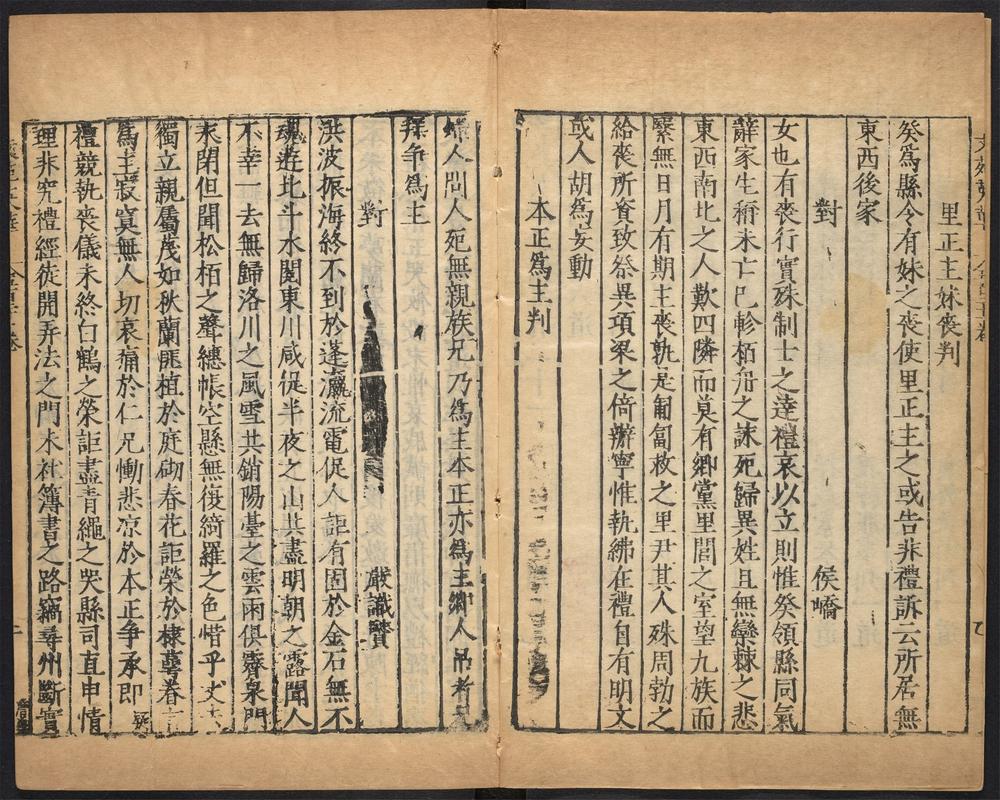 里正主妹喪判
癸爲縣令有妹之喪使里正主之或告非禮訴云所居無
東西後家
對
侯嶠
女也有喪行實殊制士之達禮哀以立則惟癸領縣同氣
辭家生稱未亡已軫栢舟之詠死歸異姓且無欒棘之悲
東西南北之人歎四隣而莫有鄉黨里閭之室望九族而
緊無日月有期主喪孰是匍匐救之里尹其人殊周勃之
給喪所資致祭異項梁之倚辦寧惟執紼在禮自有明文
或人胡爲妄動
本正爲主判
婦人問人死無親族兄乃爲主本正亦爲主鄉人吊者
拜争爲主
對
嚴識贊
洪波振海終不到於蓬瀛流電促人詎有固於金石無不
魂遊北斗水閱東川咸從半夜之山共盡明朝之露聞人
不幸一去無歸洛川之風雪共銷陽臺之雲雨俱齎泉門
永閉但聞松栢之聲繐帳空懸無復綺羅之色惜乎丈
獨立親屬茂如秋蘭匪植於庭砌春花詎榮於棣萼眷
爲主寂寞無人切哀痛於仁兄慟悲凉於本正争承即
禮競執喪儀未終白鶴之榮詎盡青繩之哭縣司直申情
理非究禮經徒開弄法之門未袪簿書之路竊尋州斷實